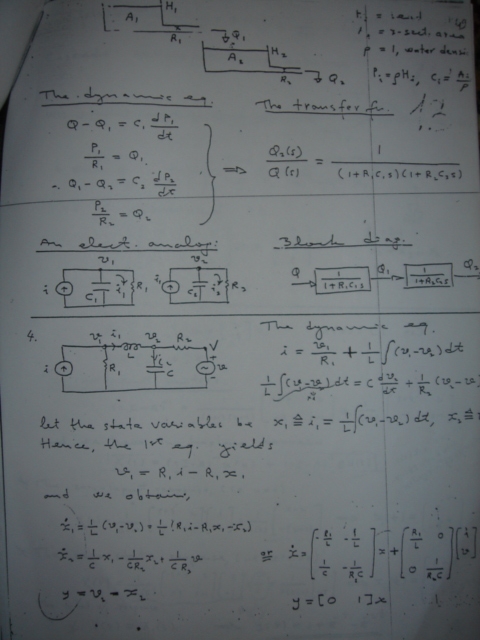 A₁
H₁
R₁
Q₁
A₂
H₂
R₂
Q₂
ρ = 1, water densi
Pᵢ = ρHᵢ, Cᵢ = Aᵢ/ρ
The dynamic eq.
Q - Q₁ = C₁ dP₁/dt
P₁/R₁ = Q₁
Q₁ - Q₂ = C₂ dP₂/dt
P₂/R₂ = Q₂
⟹
The transfer fn.
Q₂(s)/Q(s) = 1/((1+R₁C₁s)(1+R₂C₂s))
An elect. analog:
v₁
i
C₁
i₁
R₁
v₂
i₁
C₂
i₂
R₂
Block diag.
Q
1/(1+R₁C₁s)
Q₁
1/(1+R₂C₂s)
Q₂
4.
i
v₁
i₁
L
v₂
R₂
V
R₁
i₂
C
v
The dynamic eq.
i = v₁/R₁ + 1/L ∫(v₁-v₂)dt
1/L ∫(v₁-v₂)dt = C dv₂/dt + 1/R₂ (v₂-v
i₁
let the state variables be x₁ ≜ i₁ = 1/L ∫(v₁-v₂)dt, x₂ ≜
Hence, the 1st eq. yields
v₁ = R₁i - R₁x₁
and we obtain,
ẋ₁ = 1/L (v₁-v₂) = 1/L (R₁i - R₁x₁ - x₂)
ẋ₂ = 1/C x₁ - 1/CR₂ x₂ + 1/CR₂ v
or ẋ = [-R₁/L -1/L; 1/C -1/R₂C] x + [R₁/L 0; 0 1/R₂C] [i; v]
y = v₂ = x₂
y = [0 1]x